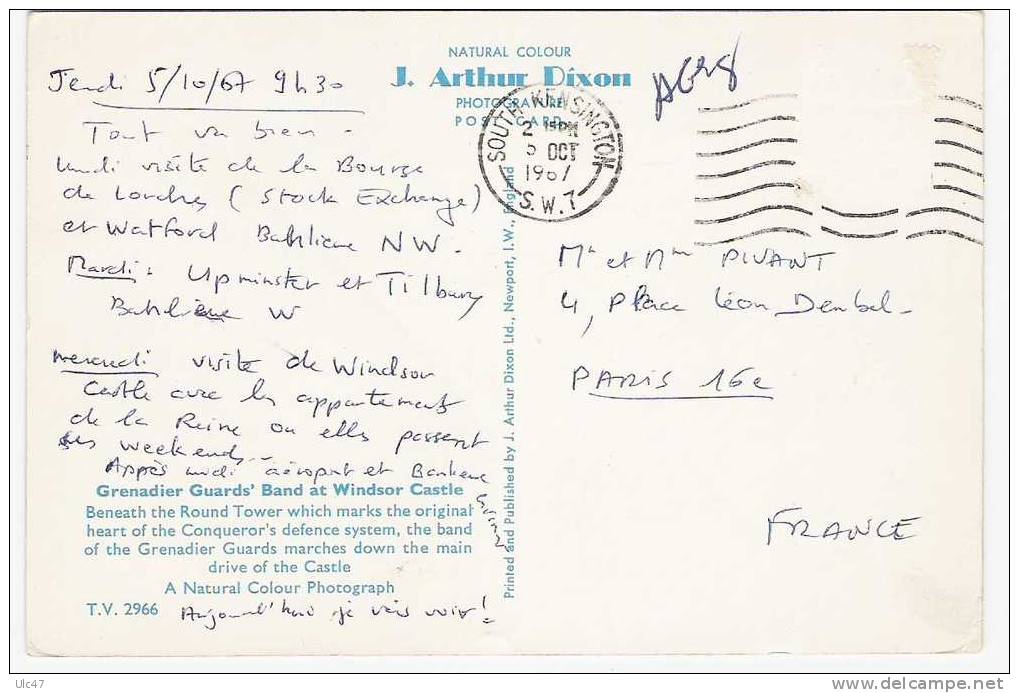 NATURAL COLOUR
J. Arthur Dixon
PHOTOGRAVURE
POST CARD
SOUTH KENSINGTON
2 15 PM
5 OCT
1967
S.W.7
Jeudi 5/10/67 9h30
Tout va bien -
Lundi visite de la Bourse
de Londres (Stock Exchange)
et Watford Banlieue NW.
Mardi: Upminster et Tilbury
Banlieue W
Mercredi visite de Windsor
Castle avec les appartements
de la Reine où elle passent
ses weekends...
Après midi aéroport et Banlieue
Aujourd'hui je vais voir!
Grenadier Guards' Band at Windsor Castle
Beneath the Round Tower which marks the original
heart of the Conqueror's defence system, the band
of the Grenadier Guards marches down the main
drive of the Castle
A Natural Colour Photograph
T.V. 2966
Printed and Published by J. Arthur Dixon Ltd., Newport, I.W., England
Mr et Mme PIVANT
4, Place Léon Deubel -
PARIS 16e
FRANCE
Ulc47
delcampe.net